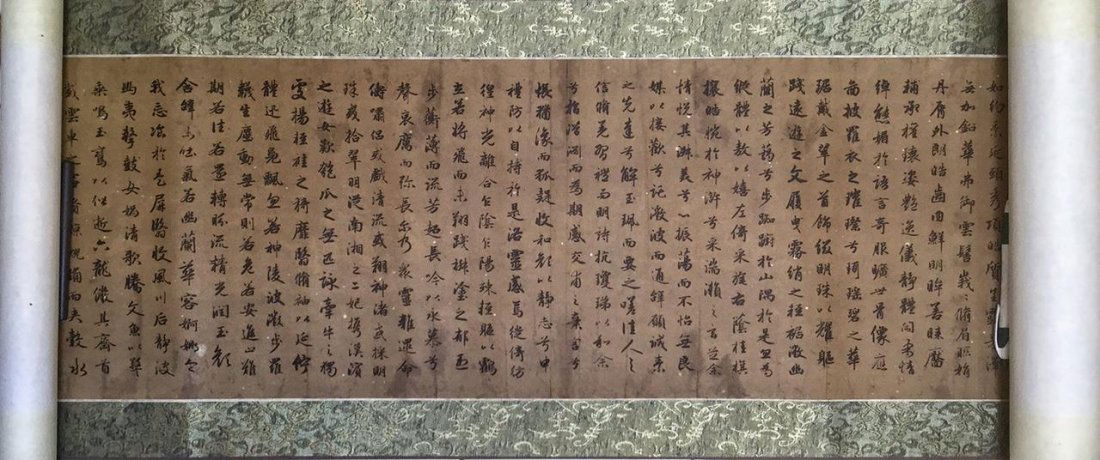 如約素延頸秀項皓質呈露
無加鉛華弗御雲髻峩峩脩眉聯娟
丹脣外朗皓齒內鮮明眸善睞靨
輔承權瓌姿艷逸儀靜體閑柔情
綽態媚於語言奇服曠世骨像應
圖披羅衣之璀璨兮珥瑤碧之華
琚戴金翠之首飾綴明珠以耀軀
踐遠遊之文履曳霧綃之輕裾微幽
蘭之芳藹兮步踟躕於山隅於是忽焉
縱體以敖以嬉左倚采旄右蔭桂旗
攘皓腕於神滸兮采湍瀨之玄芝余
情悅其淑美兮心振蕩而不怡無良
媒以接歡兮託微波而通辭願誠素
之先達兮解玉珮而要之嗟佳人之
信脩羌習禮而明詩抗瓊珶以和余
兮指潛淵而為期感交甫之棄言兮
悵猶豫而狐疑收和顏以靜志兮申
禮防以自持於是洛靈感焉徙倚彷
徨神光離合乍陰乍陽竦輕軀以鶴
立若將飛而未翔踐椒塗之郁烈
步蘅薄而流芳超長吟以永慕兮
聲哀厲而彌長爾乃衆靈雜遝命
儔嘯侶或戲清流或翔神渚或採明
珠或拾翠明從南湘之二妃攜漢濱
之遊女歎匏瓜之無匹詠牽牛之獨
處揚輕袿之猗靡翳脩袖以延佇
體迅飛鳧飄忽若神陵波微步羅
韈生塵動無常則若危若安進止難
期若往若還轉眄流精光潤玉顏
含辭未吐氣若幽蘭華容婀娜令
我忘飡於是屏翳收風川后靜波
馮夷擊鼓女媧清歌騰文魚以警
乘鳴玉鸞以偕逝六龍儼其齊首
載雲車之容裔鯨鯢踴而夾轂水